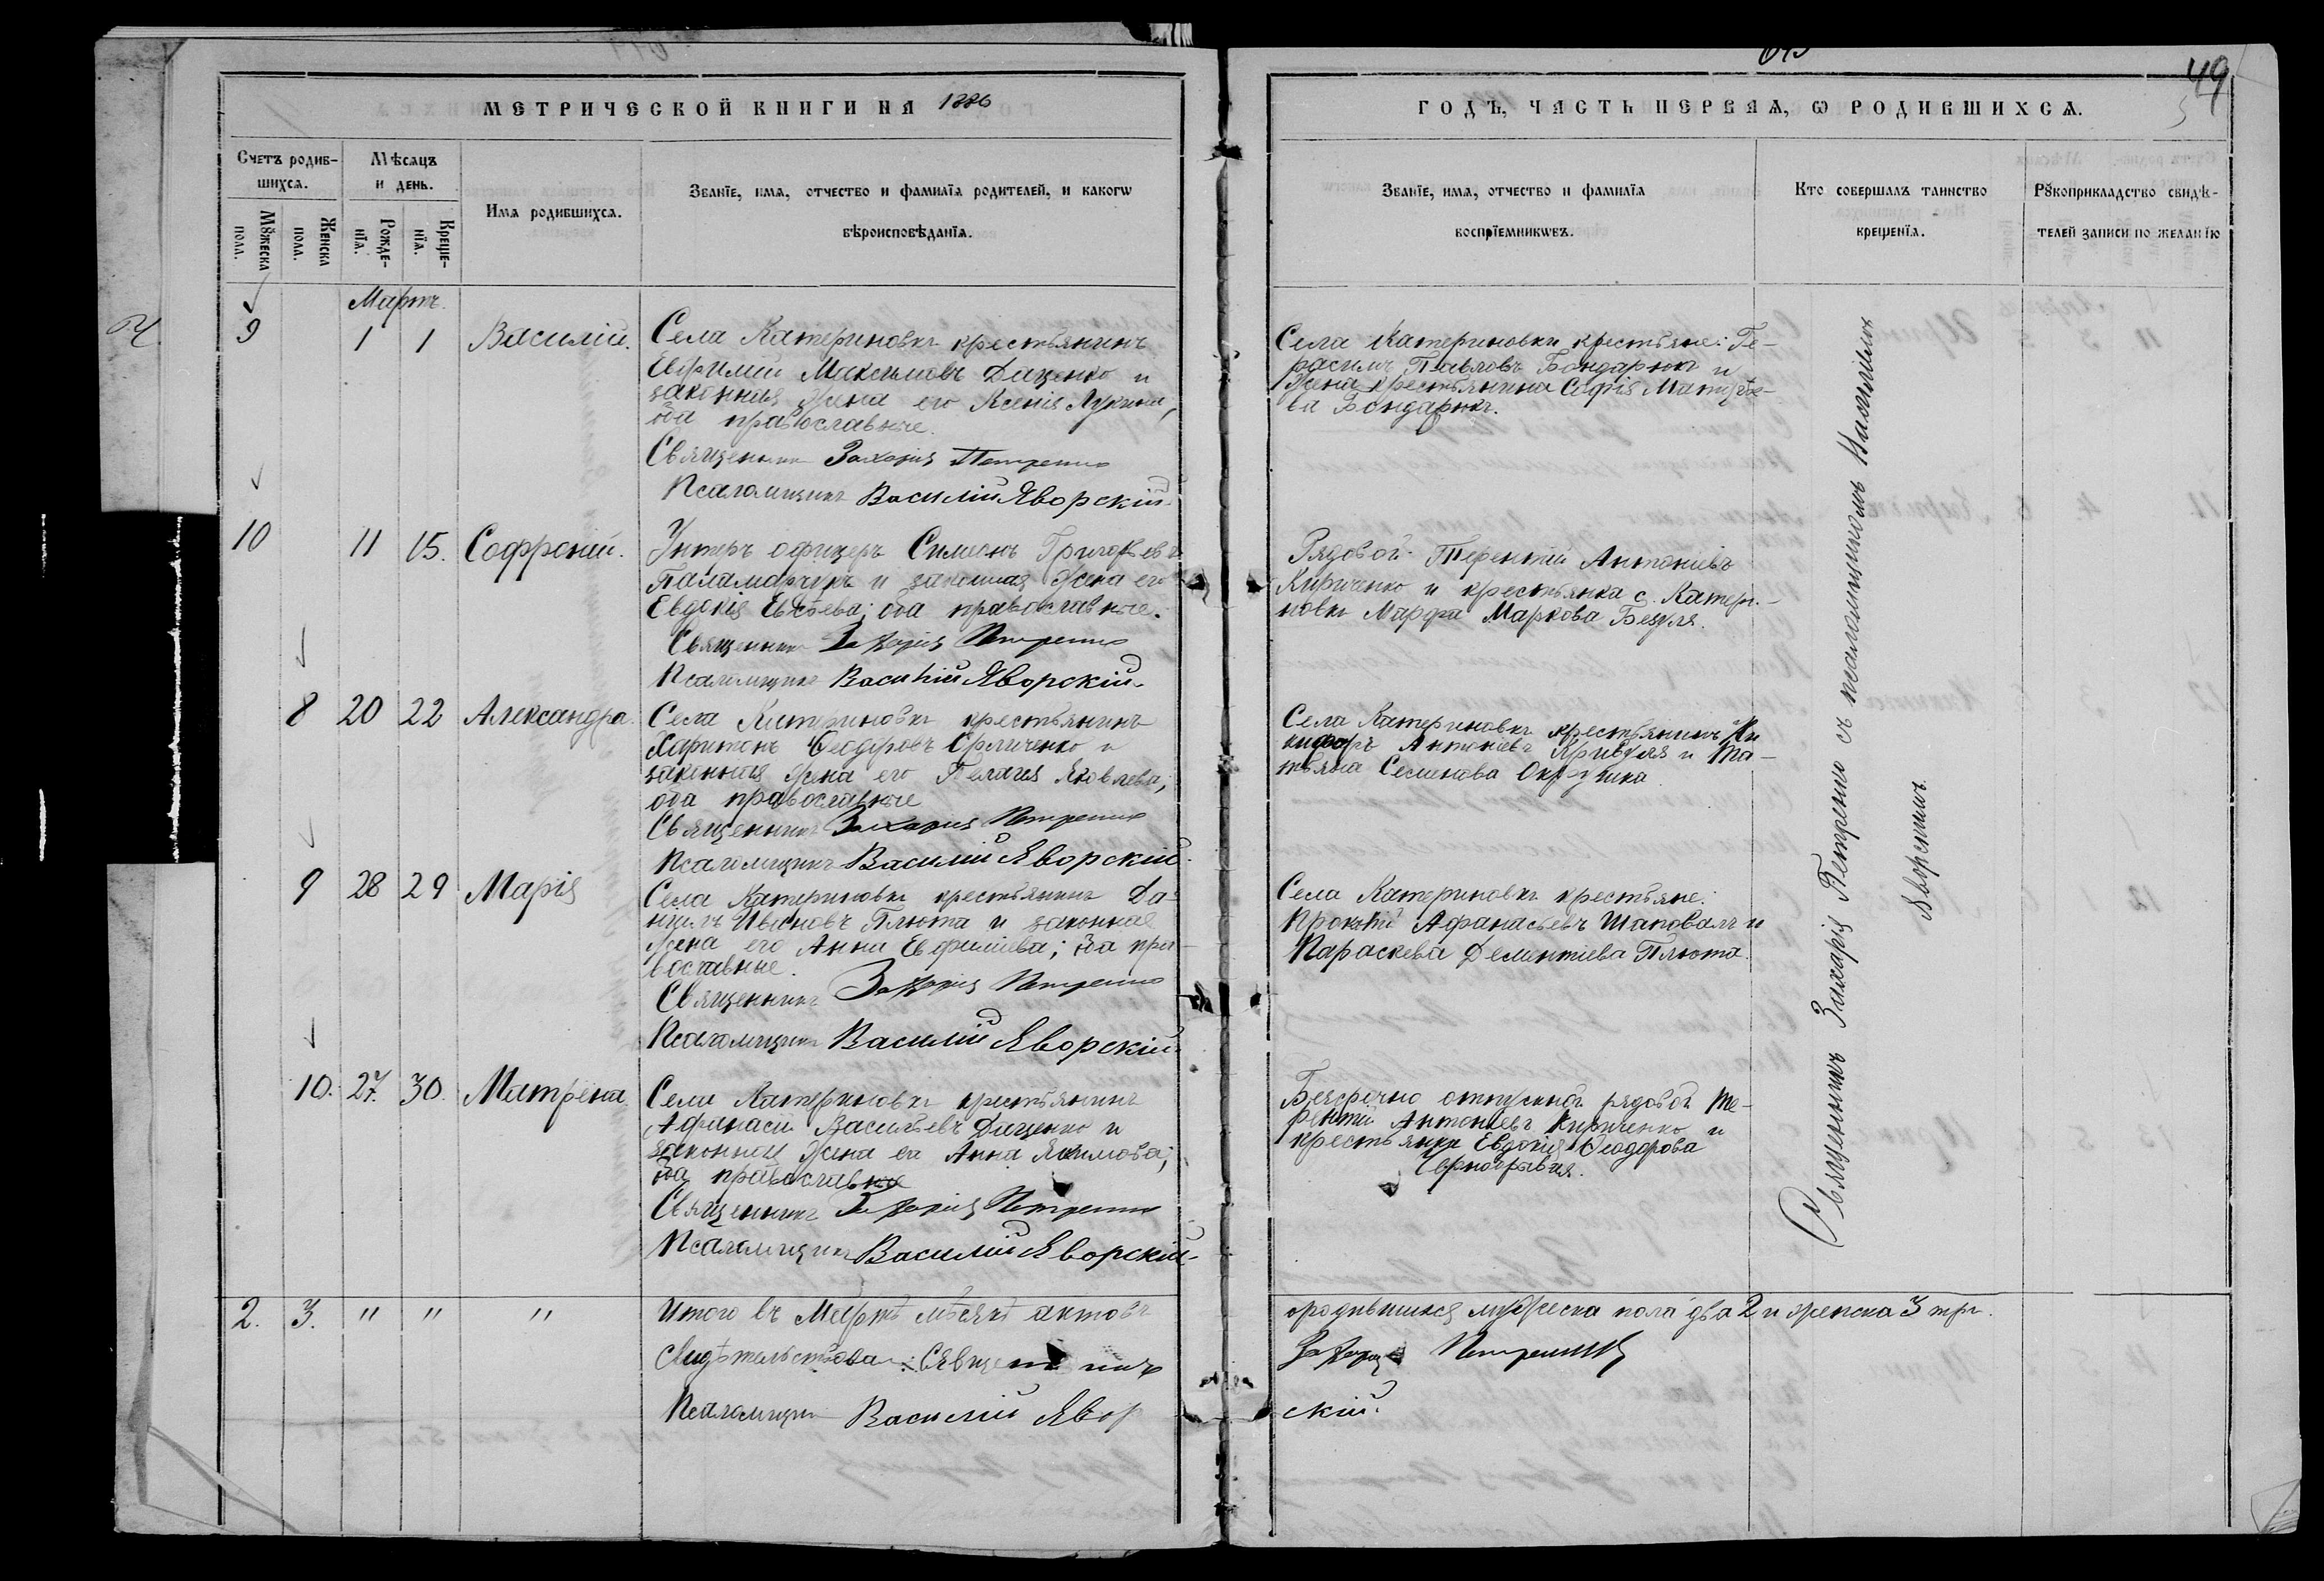 49
МЕТРИЧЕСКОЙ КНИГИ НА 1886
ГОДЪ, ЧАСТЬ ПЕРВАѦ, Ѡ РОДИВШИХСѦ.
Счетъ родив-
шихсѧ.
Мѣсѧцъ
и день.
Мꙋжеска
пола.
Женска
пола.
Рожде-
нїѧ.
Креще-
нїѧ.
Имѧ родившихсѧ.
Званїе, имѧ, отчество и фамилїѧ родителей, и какогѡ
вѣроисповѣданїѧ.
Званїе, имѧ, отчество и фамилїѧ
воспрїемникѡвъ.
Кто совершалъ таинство
крещенїѧ.
Рꙋкоприкладство свидѣ-
телей записи по желанїю
Мартъ.
9 1 1 Василій.
Села Катериновки крестьянинъ
Евфимій Максимовъ Даценко и
законная жена его Ксенія Лукина,
оба православные.
Священникъ Захарія Петренко
Псаломщикъ Василій Яворскій.
Села Катериновки крестьяне: Ге-
расимъ Павловъ Бондарюкъ и
жена крестьянина Софія Матвѣе-
ва Бондарюкъ.
10 11 15. Софроній.
Унтеръ офицеръ Симеонъ Григорьевъ
Паламарчукъ и законная жена его
Евдокія Евсѣева; оба православные.
Священникъ Захарія Петренко
Псаломщикъ Василій Яворскій.
Рядовой Терентій Антоніевъ
Кириченко и крестьянка с. Катери-
новки Марфа Маркова Безуля.
8 20 22 Александра.
Села Катериновки крестьянинъ
Харитонъ Ѳеодоровъ и
законная жена его Пелагія Яковлева;
оба православные
Священникъ Захарія Петренко
Псаломщикъ Василій Яворскій.
Села Катериновки крестьянинъ Ни
кифоръ Антоніевъ Кривуля и Та-
тьяна Семенова
9 28 29 Марія
Села Катериновки крестьянинъ Да-
ніилъ Ивановъ Плюта и законная
жена его Анна Евфиміева; оба пра-
вославные.
Священникъ Захарія Петренко
Псаломщикъ Василій Яворскій.
Села Катериновки крестьяне:
Прокопій Афанасьевъ Шаповалъ и
Параскева Дементіева Плюта.
10. 27. 30. Матрена.
Села Катериновки крестьянинъ
Афанасій Васильевъ Даценко и
законная жена его Анна Якимова;
оба православные
Священникъ Захарія Петренко
Псаломщикъ Василій Яворскій.
Безсрочно отпускной рядовой Те-
рентій Антоніевъ Кириченко и
крестьянка Евдокія Ѳеодорова
Священникъ Захарія Петренко съ псаломщикомъ Василіемъ
Яворскимъ.
2. 3. " " "
Итого въ Мартѣ мѣсяцѣ актовъ
о родившихся мужеска пола два 2 и женска 3 три.
Свидѣтельствовали: Священникъ
Захарія Петренко
Псаломщикъ Василій Явор
скій.